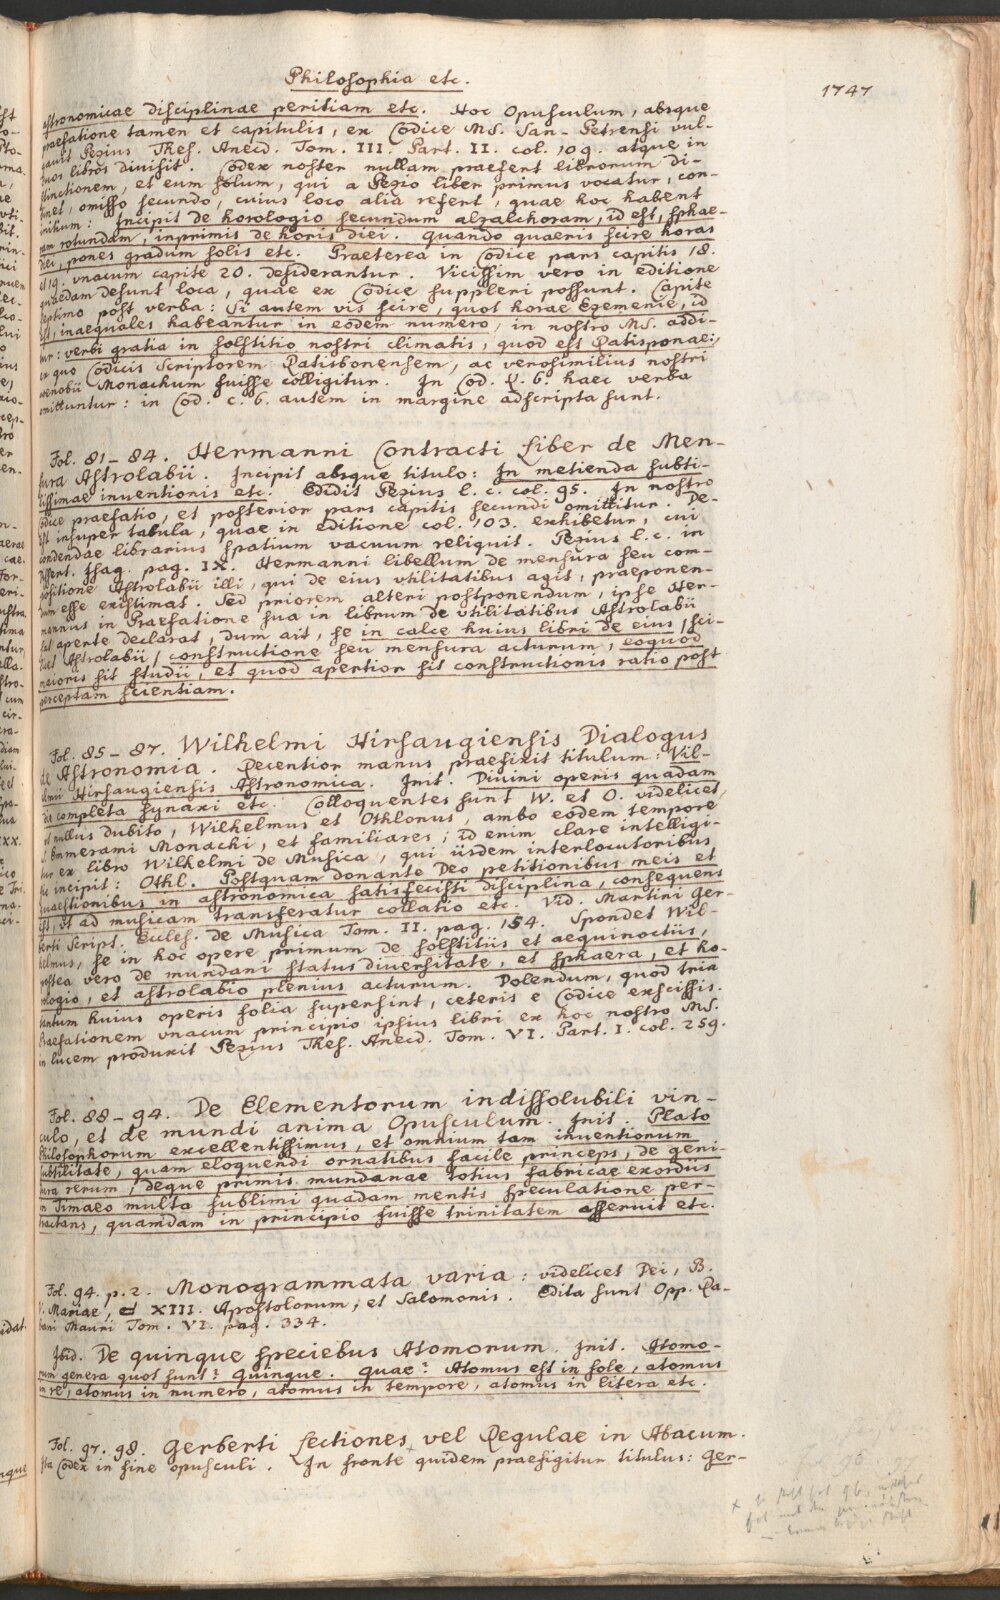 Philosophia etc.
1747
astronomicae disciplinae peritiam etc. Hoc Opusculum, absque
praefatione tamen et capitulis, ex Codice MS. San-Petrensi vul-
gavit Pezius Thes. Anecd. Tom. III. Part. II. col. 109. atque in
duos libros divisit. Codex noster nullam praefert librorum di-
stinctionem, et eum solum, qui a Pezio liber primus vocatur, con-
tinet, omisso secundo, cuius loco alia refert, quae hoc habent
initium: Incipit de horologio secundum alzalchoram, id est, sphae-
ram rotundam, inprimis de horis diei. Quando quaeris scire horas
diei, pones gradum solis etc. Praeterea in Codice pars capitis 18.
et 19. vnacum capite 20. desiderantur. Vicissim vero in editione
quaedam desunt loca, quae ex Codice suppleri possunt. Capite
septimo post verba: Si autem vis scire, quot horae Ezemenie, id
est, inaequales habeantur in eodem numero, in nostro MS. addi-
tur: verbi gratia in solstitio nostri climatis, quod est Ratisponae;
ex quo Codicis Scriptorem Ratisbonensem, ac verosimilius nostri
coenobii Monachum fuisse colligitur. In Cod. Q. 6. haec verba
omittuntur: in Cod. c. 6. autem in margine adscripta sunt.
Fol. 81-84. Hermanni Contracti Liber de Men-
sura Astrolabii. Incipit absque titulo: In metienda subti-
lissimae inventionis etc. Edidit Pezius l. c. col. 95. In nostro
Codice praefatio, et posterior pars capitis secundi omittitur. De-
est insuper tabula, quae in Editione col. 103. exhibetur, cui
condendae librarius spatium vacuum reliquit. Pezius l. c. in
Dissert. Isag. pag. IX. Hermanni libellum de mensura seu com-
positione Astrolabii illi, qui de eius vtilitatibus agit, praeponen-
dum esse existimat. Sed priorem alteri postponendum, ipse Her-
mannus in Praefatione sua in librum de vtilitatibus Astrolabii
sat aperte declarat, dum ait, se in calce huius libri de eius /sci-
licet Astrolabii/ constructione seu mensura acturum, eoquod
maioris sit studii, et quod apertior sit constructionis ratio post
perceptam scientiam.
Fol. 85-87. Wilhelmi Hirsaugiensis Dialogus
de Astronomia. Recentior manus praefixit titulum: Wil-
elmi Hirsaugiensis Astronomica. Init. Divini operis quadam
die completa synaxi etc. Colloquentes sunt W. et O. videlicet,
vt nullus dubito, Wilhelmus et Othlonus, ambo eodem tempore
S. Emmerami Monachi, et familiares; id enim clare intelligi-
tur ex libro Wilhelmi de Musica, qui iisdem interlocutoribus
sic incipit: Othl. Postquam donante Deo petitionibus meis et
quaestionibus in astronomica satisfecisti disciplina, consequens
est, vt ad musicam transferatur collatio etc. Vid. Martini Ger-
berti Script. Eccles. de Musica Tom. II. pag. 154. Spondet Wil-
helmus, se in hoc opere primum de solstitiis et aequinoctiis,
postea vero de mundani status diversitate, et sphaera, et ho-
rologio, et astrolabio plenius acturum. Dolendum, quod tria
tantum huius operis folia supersint, ceteris e Codice exscissis.
Praefationem vnacum principio ipsius libri ex hoc nostro MS.
in lucem produxit Pezius Thes. Anecd. Tom. VI. Part. I. col. 259.
Fol. 88-94. De Elementorum indissolubili vin-
culo, et de mundi anima Opusculum. Init. Plato
Philosophorum excellentissimus, et omnium tam inventionum
subtilitate, quam eloquendi ornatibus facile princeps, de geni-
tura rerum, deque primis mundanae totius fabricae exordiis
in Timaeo multa sublimi quadam mentis speculatione per-
tractans, quamdam in principio fuisse trinitatem asseruit etc.
Fol. 94. p. 2. Monogrammata varia: videlicet Dei, B.
V. Mariae, et XIII. Apostolorum, et Salomonis. Edita sunt Opp. Ra-
bani Mauri Tom. VI. pag. 334.
Ibid. De quinque speciebus Atomorum. Init. Atomo-
rum genera quot sunt? Quinque. Quae? Atomus est in sole, atomus
in re, atomus in numero, atomus in tempore, atomus in litera etc.
Fol. 97. 98. Gerberti sectiones vel Regulae in Abacum.
Ita Codex in fine opusculi. + In fronte quidem praefigitur titulus: Ger-